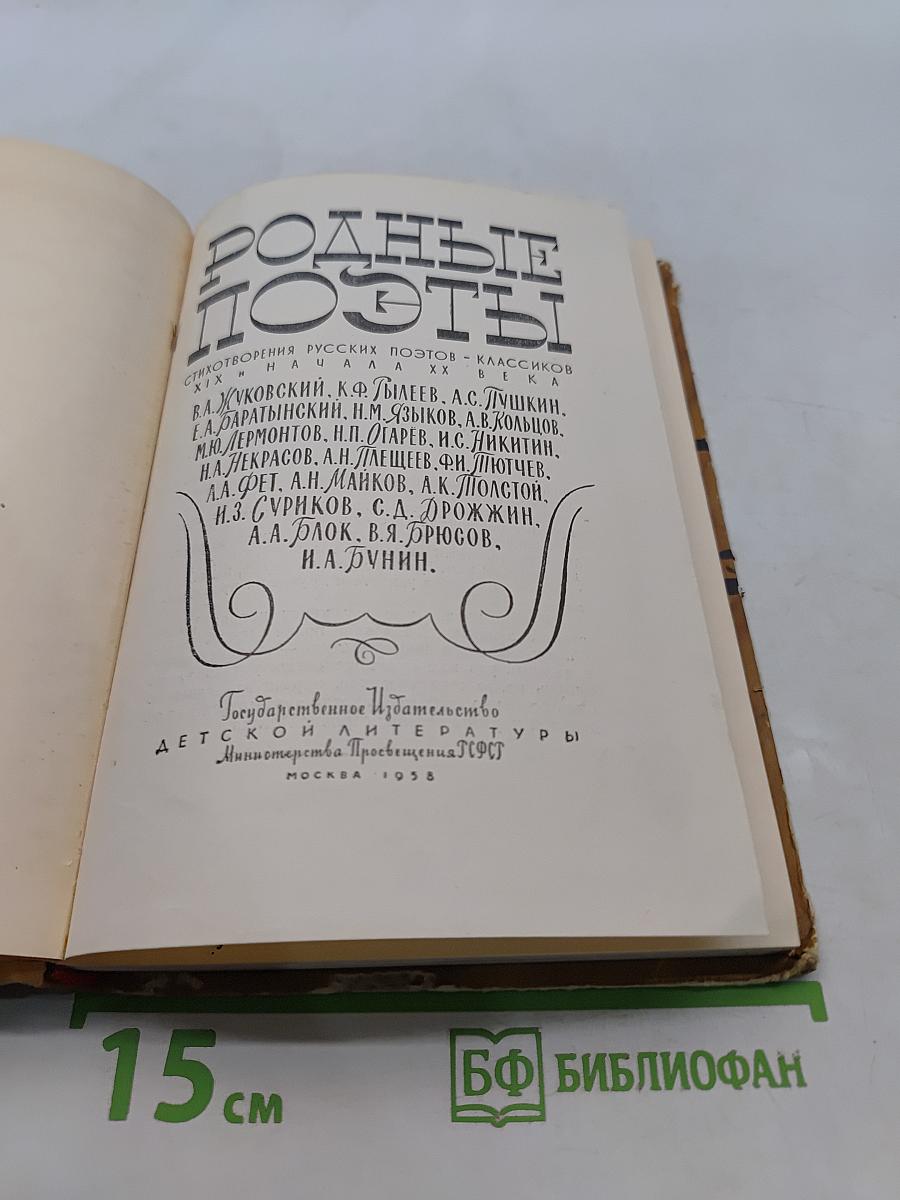 РОДНЫЕ
ПОЭТЫ
СТИХОТВОРЕНИЯ РУССКИХ ПОЭТОВ - КЛАССИКОВ
XIX и НАЧАЛА XX ВЕКА
В.А. ЖУКОВСКИЙ, К.Ф. РЫЛЕЕВ, А.С. ПУШКИН,
Е.А. БАРАТЫНСКИЙ, Н.М. ЯЗЫКОВ, А.В. КОЛЬЦОВ,
М.Ю. ЛЕРМОНТОВ, Н.П. ОГАРЁВ, И.С. НИКИТИН,
Н.А. НЕКРАСОВ, А.Н. ПЛЕЩЕЕВ, Ф.И. ТЮТЧЕВ,
А.А. ФЕТ, А.Н. МАЙКОВ, А.К. ТОЛСТОЙ,
И.З. СУРИКОВ, С.Д. ДРОЖЖИН,
А.А. БЛОК, В.Я. БРЮСОВ,
И.А. БУНИН.
Государственное Издательство
ДЕТСКОЙ ЛИТЕРАТУРЫ
Министерства Просвещения РСФСР
МОСКВА 1958
15 см
БФ БИБЛИОФАН